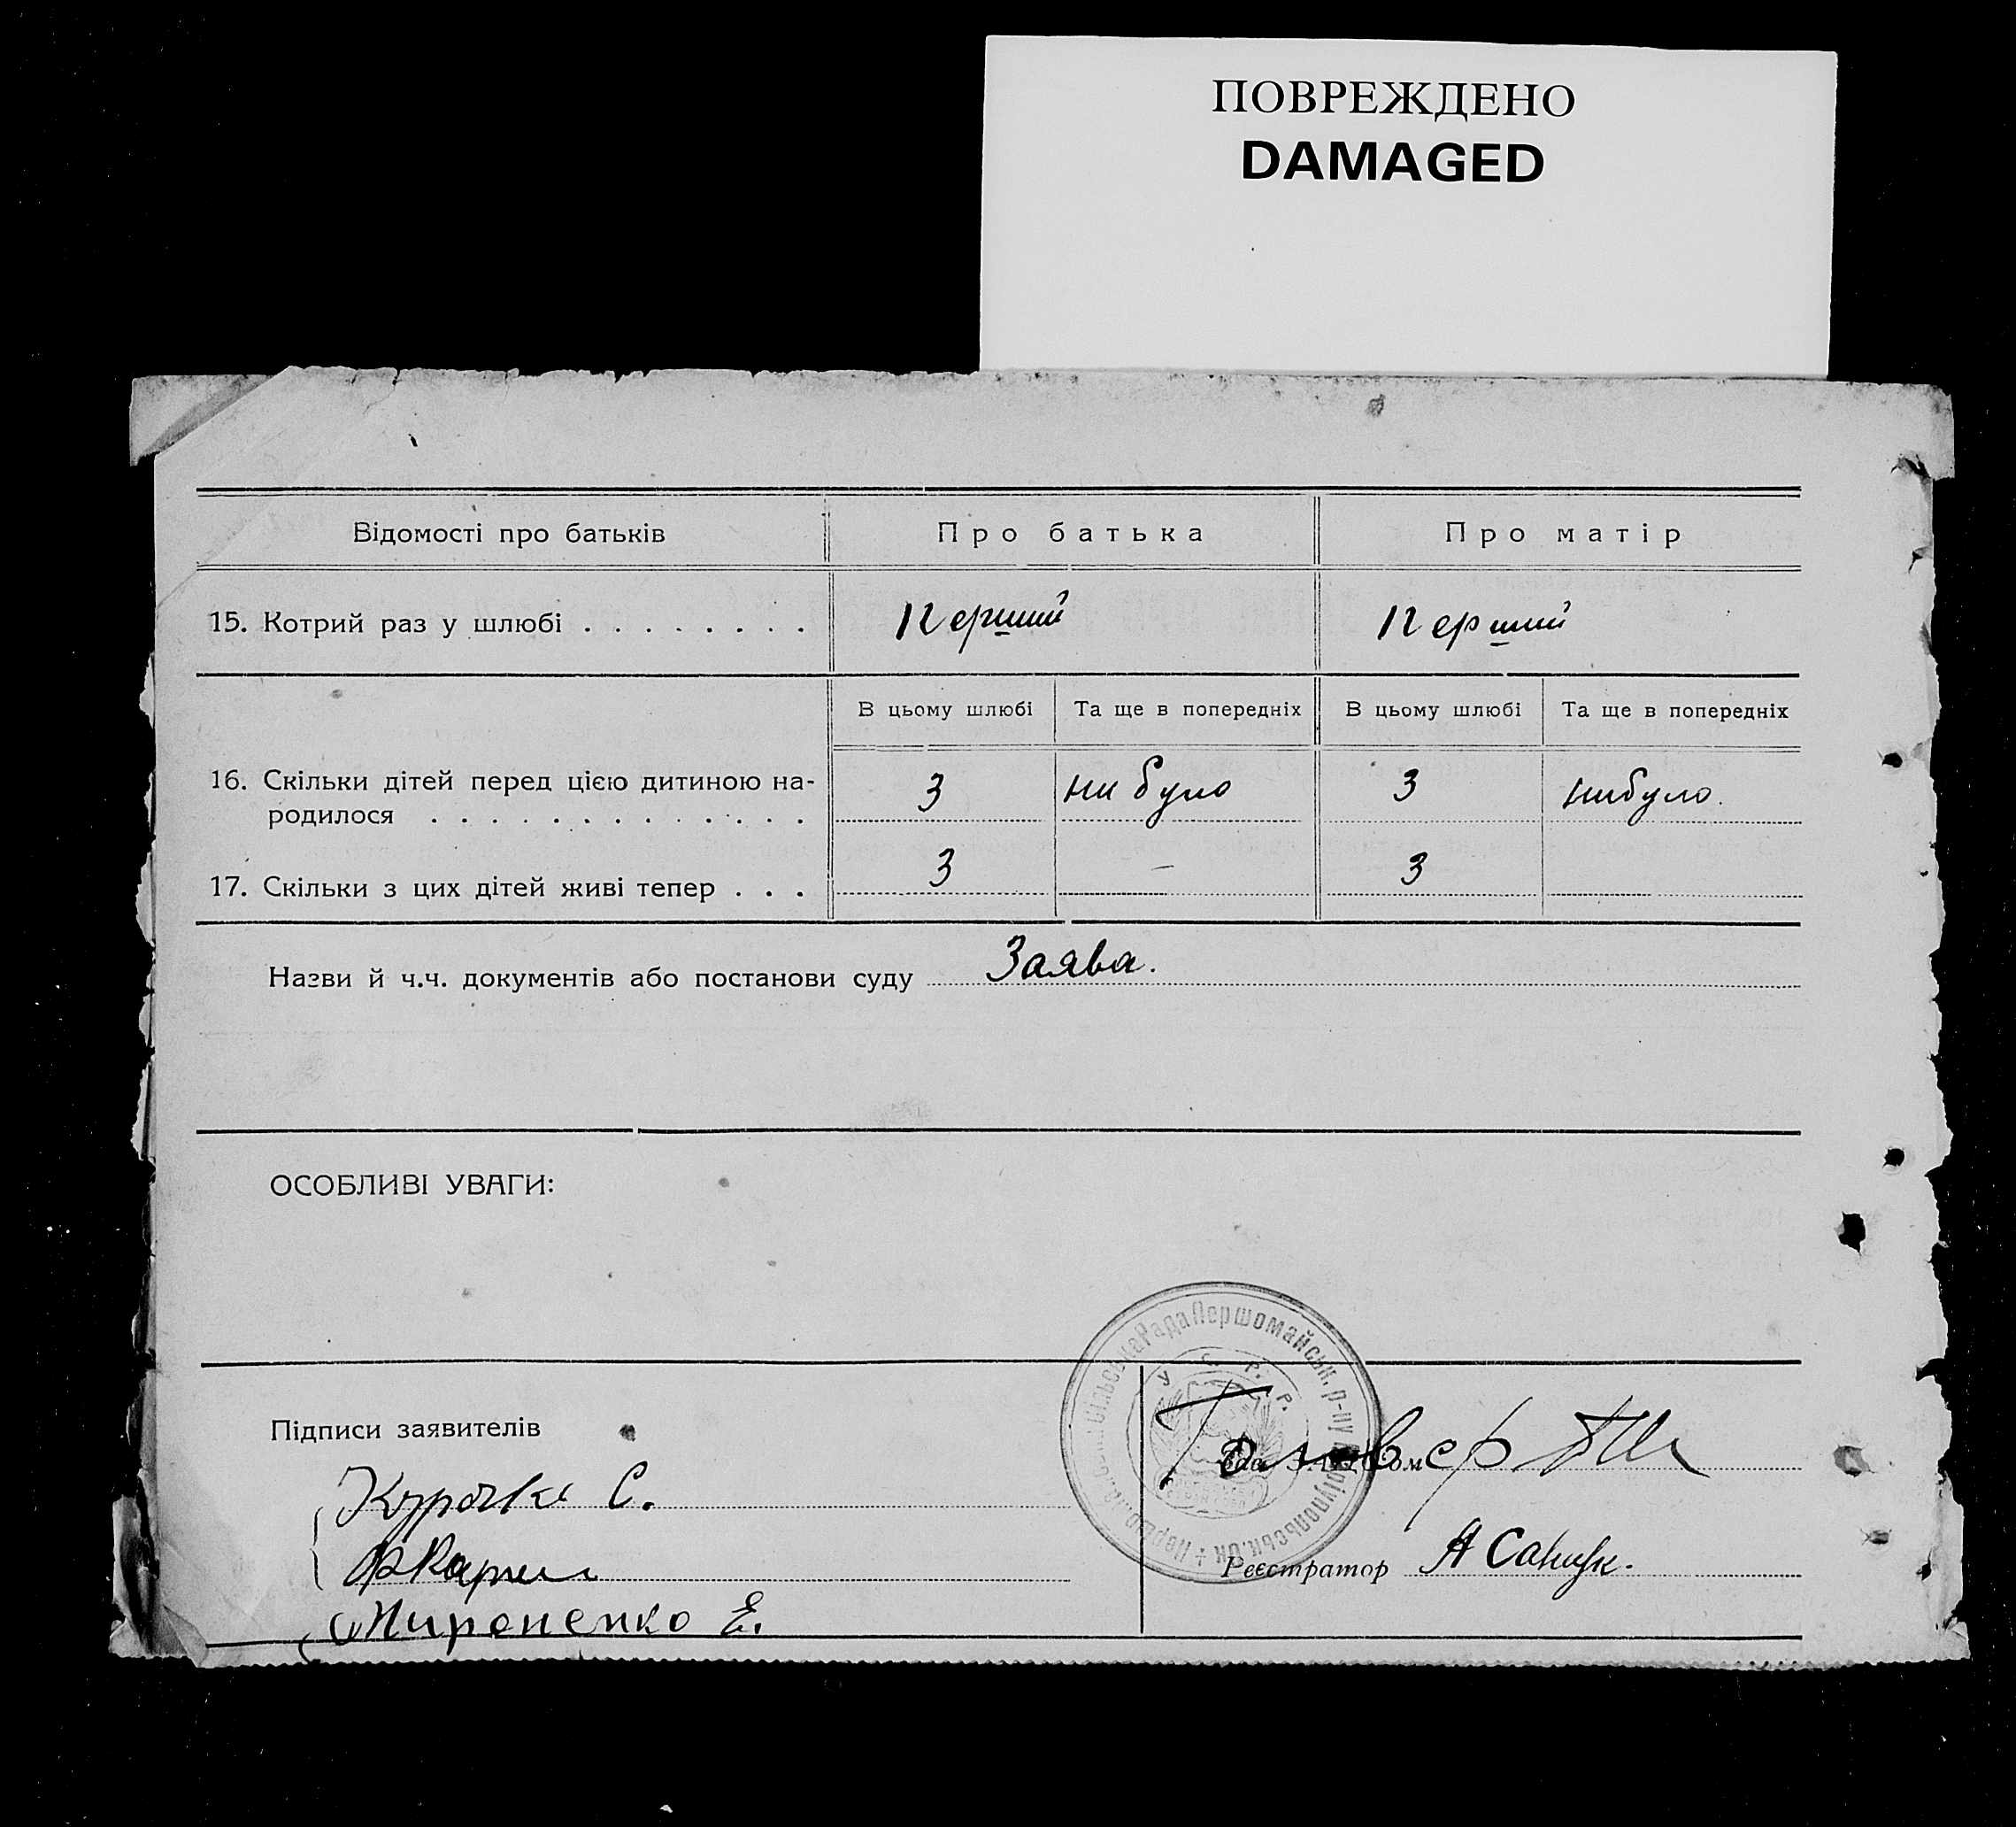 ПОВРЕЖДЕНО
DAMAGED
Відомості про батьків Про батька Про матір
15. Котрий раз у шлюбі . . . . . . . . Перший Перший
В цьому шлюбі Та ще в попередніх В цьому шлюбі Та ще в попередніх
16. Скільки дітей перед цією дитиною на-
родилося . . . . . . . . . . . . . 3 ни було 3 нибуло.
17. Скільки з цих дітей живі тепер . . . 3 – 3
Назви й ч.ч. документів або постанови суду Заява.
ОСОБЛИВІ УВАГИ:
сільська Рада Першомайськ. р-ну Маріупольськ. ок
У. С. Р. Р.
Підписи заявителів
С.
Мироненко Е.
Реєстратор А